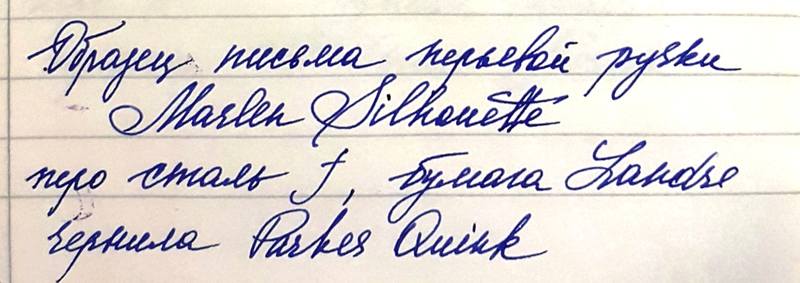 Образец письма перьевой ручки
Marlen Silhouette
перо сталь f, бумага Landre
чернила Parker Quink